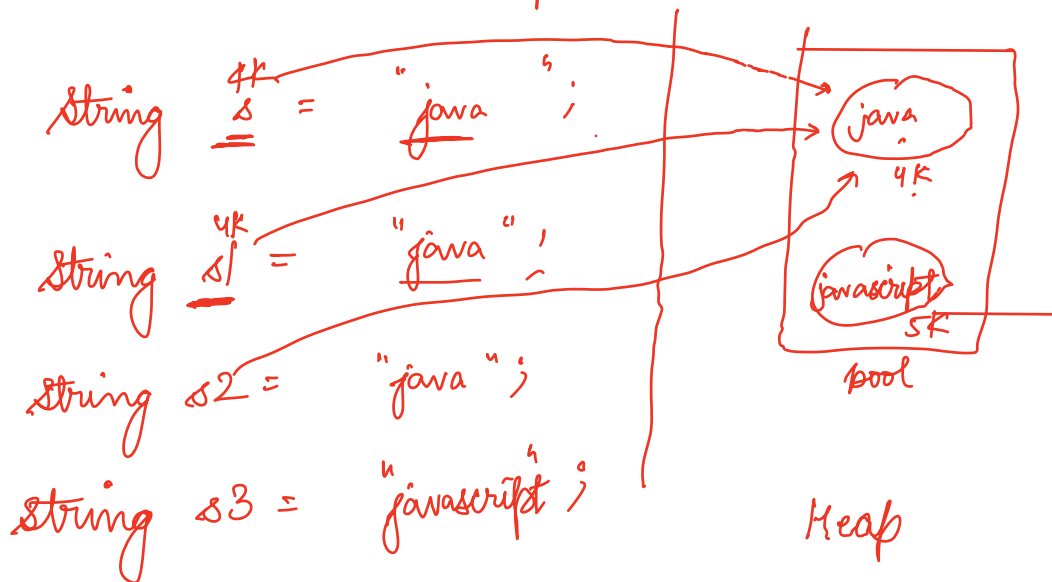 4K
string s = "java";
4K
string s1 = "java";
string s2 = "java";
string s3 = "javascript";
java
4K
javascript
5K
pool
Heap